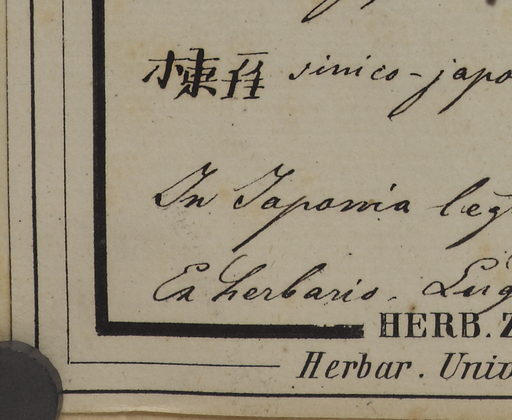 sinico-japo
In Japonia leg
Ex herbario. Lug
HERB. Z
Herbar. Univ